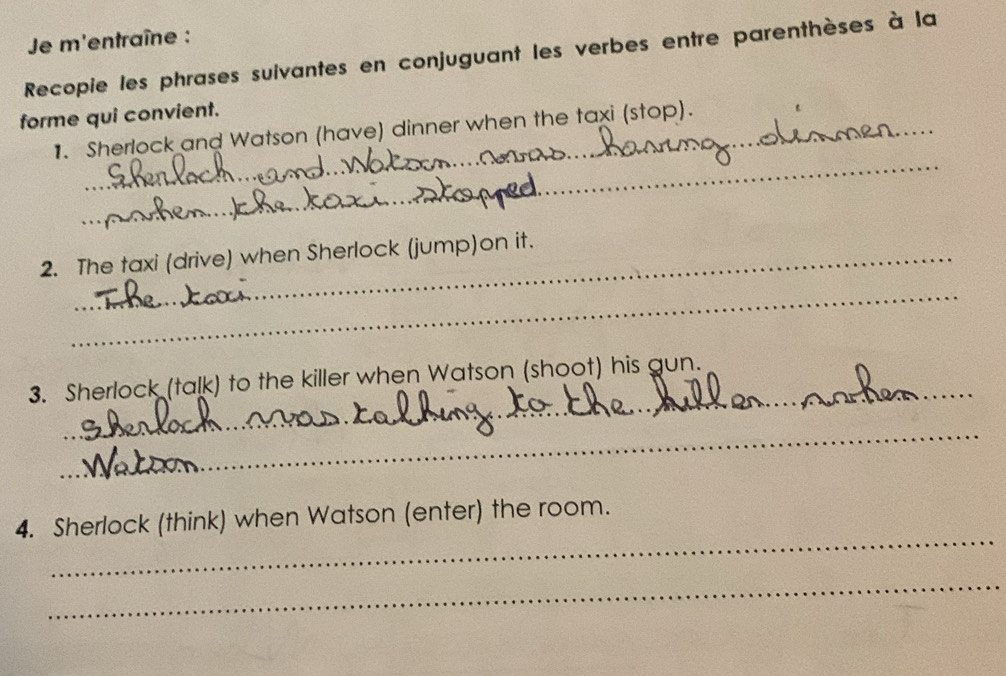 Je m'entraîne :
Recopie les phrases suivantes en conjuguant les verbes entre parenthèses à la
forme qui convient.
1. Sherlock and Watson (have) dinner when the taxi (stop).
Sherlock and Watson was having dinner
when the taxi stopped.
2. The taxi (drive) when Sherlock (jump)on it.
The taxi
3. Sherlock (talk) to the killer when Watson (shoot) his gun.
Sherlock was talking to the killer when
Watson
4. Sherlock (think) when Watson (enter) the room.